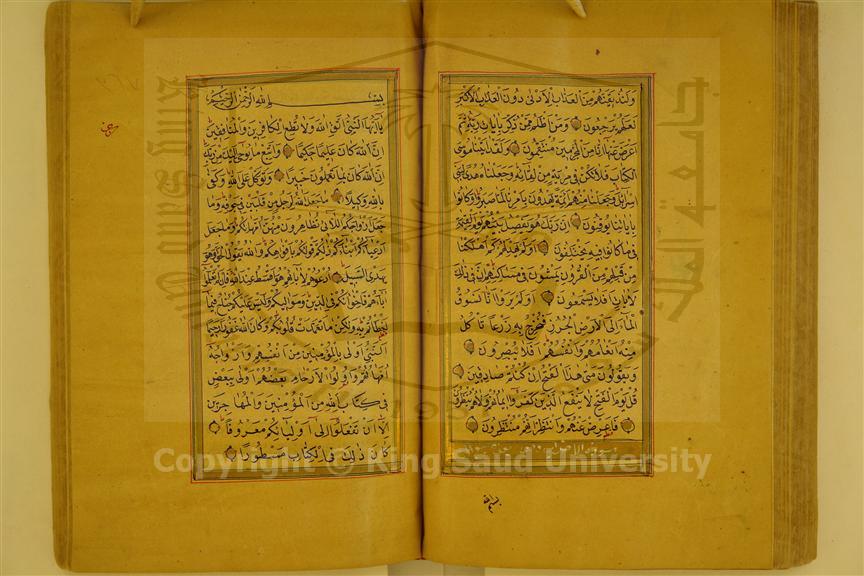 ولنذيقنهم من العذاب الادنى دون العذاب الاكبر
لعلهم يرجعون ومن اظلم ممن ذكر بايات ربه ثم
اعرض عنها انا من المجرمين منتقمون ولقد اتينا موسى
الكتاب فلا تكن في مرية من لقائه وجعلناه هدى لبني
اسرائيل وجعلنا منهم ائمة يهدون بامرنا لما صبروا وكانوا
باياتنا يوقنون ان ربك هو يفصل بينهم يوم القيمة
في ما كانوا فيه يختلفون اولم يهد لهم كم اهلكنا
من قبلهم من القرون يمشون في مساكنهم ان في ذلك
لايات افلا يسمعون اولم يروا انا نسوق
الماء الى الارض الجرز فنخرج به زرعا تاكل
منه انعامهم وانفسهم افلا يبصرون
ويقولون متى هذا الفتح ان كنتم صادقين
قل يوم الفتح لا ينفع الذين كفروا ايمانهم ولا هم ينظرون
فاعرض عنهم وانتظر انهم منتظرون
بسم الله الرحمن الرحيم
يا ايها النبي اتق الله ولا تطع الكافرين والمنافقين
ان الله كان عليما حكيما واتبع ما يوحى اليك من ربك
ان الله كان بما تعملون خبيرا وتوكل على الله وكفى
بالله وكيلا ما جعل الله لرجل من قلبين في جوفه وما
جعل ازواجكم اللائي تظاهرون منهن امهاتكم وما جعل
ادعياءكم ابناءكم ذلكم قولكم بافواهكم والله يقول الحق وهو
يهدي السبيل ادعوهم لابائهم هو اقسط عند الله فان لم تعلموا
اباءهم فاخوانكم في الدين ومواليكم وليس عليكم جناح فيما
اخطاتم به ولكن ما تعمدت قلوبكم وكان الله غفورا رحيما
النبي اولى بالمؤمنين من انفسهم وازواجه
امهاتهم واولوا الارحام بعضهم اولى ببعض
في كتاب الله من المؤمنين والمهاجرين
الا ان تفعلوا الى اوليائكم معروفا
كان ذلك في الكتاب مسطورا
Copyright © King Saud University